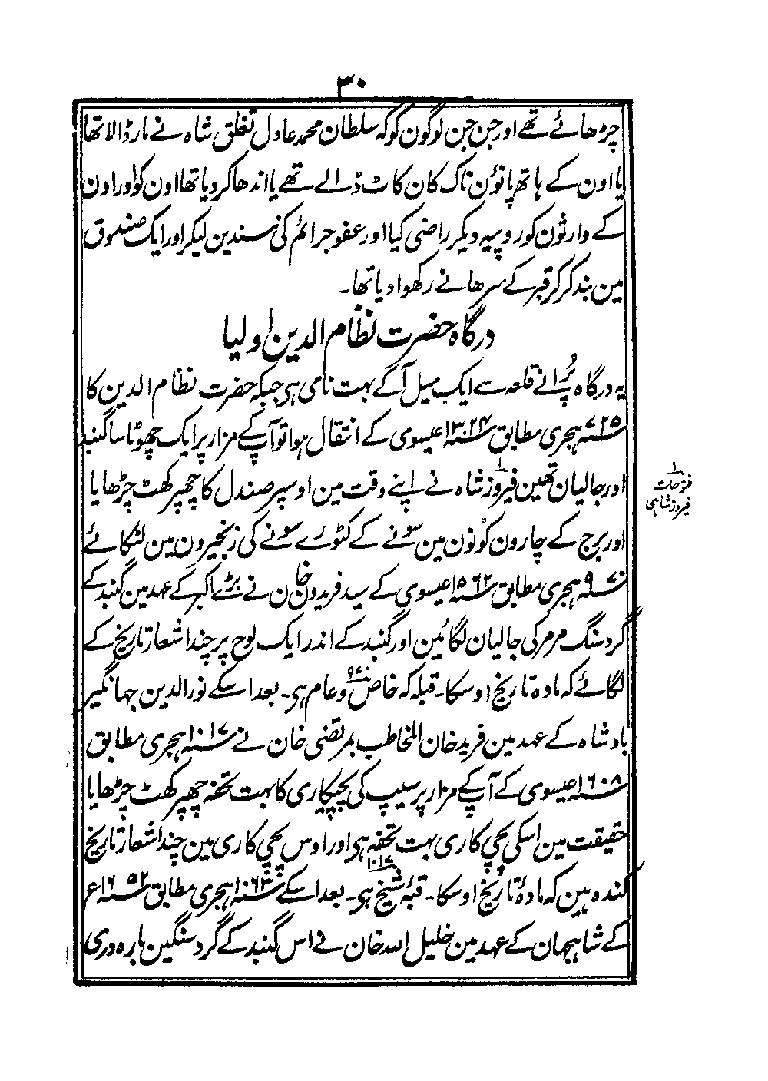 ۳۰
چڑھائے تھے اور جن جن لوگون کو کہ سلطان محمد عادل تغلق شاہ نے مار ڈالا تھا
یا اون کے ہاتھ پانؤن ناک کان کاٹ ڈالے تھے یا اندھا کر دیا تھا اون کو اور اون
کے وارثون کو روپیہ دیکر راضی کیا اور عفو جرائم کی سندین لیکر اور ایک صندوق
مین بند کر کر قبر کے سرھانے رکھوا دیا تھا۔
درگاہ حضرت نظام الدین اولیا
یہ درگاہ پُرانے قلعہ سے ایک میل آگے بہت نامی ہی جبکہ حضرت نظام الدین کا
۷۲۵؁ ہجری مطابق ۱۳۲۴؁ عیسوی کے انتقال ہوا تو آپکے مزار پر ایک چھوٹا سا گنبد
اور جالیان تھین فیروز شاہ نے اپنے وقت مین اوسپر صندل کا چھپر کھٹ چڑھایا
فتوحات
فیروز شاہی
اور برج کے چارون کونون مین سونے کے کٹورے سونے کی زنجیرون مین لٹکائے
۹۷۰؁ ہجری مطابق ۱۵۶۲؁ عیسوی کے سید فریدون خان نے بڑے اکبر کے عہد مین گنبد کے
گرد سنگ مرمر کی جالیان لگائین اور گنبد کے اندر ایک لوح پر چند اشعار تاریخ کے
لگائے کہ مادہ تاریخ اوسکا۔ قبلہ گہ خاص و عام ہی۔ بعد اسکے نور الدین جہانگیر
بادشاہ کے عہد مین فرید خان المخاطب بمرتضی خان نے ۱۰۱۷؁ ہجری مطابق
۱۶۰۸؁ عیسوی کے آپکے مزار پر سیپ کی پچیکاری کا بہت تحفہ چھپر کھٹ چڑھایا
حقیقت مین اسکی پچی کاری بہت تحفہ ہی اور اوس پچی کاری مین چند اشعار تاریخ
کندہ ہین کہ مادہٗ تاریخ اوسکا۔ قبہٗ شیخ ۱۰۱۷ ہی۔ بعد اسکے ۱۰۶۳؁ ہجری مطابق ۱۶۵۲؁ ع
کے شاہجہان کے عہد مین خلیل اللہ خان نے اس گنبد کے گرد سنگین بارہ دری